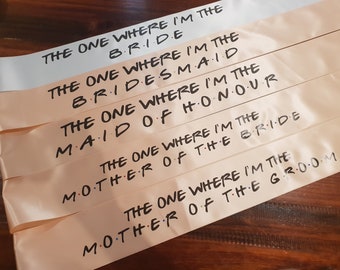 THE ONE WHERE I'M THE
B·R·I·D·E
THE ONE WHERE I'M THE
B·R·I·D·E·S·M·A·I·D
THE ONE WHERE I'M THE
M·A·I·D O·F H·O·N·O·U·R
THE ONE WHERE I'M THE
M·O·T·H·E·R O·F T·H·E B·R·I·D·E
THE ONE WHERE I'M THE
M·O·T·H·E·R O·F T·H·E G·R·O·O·M